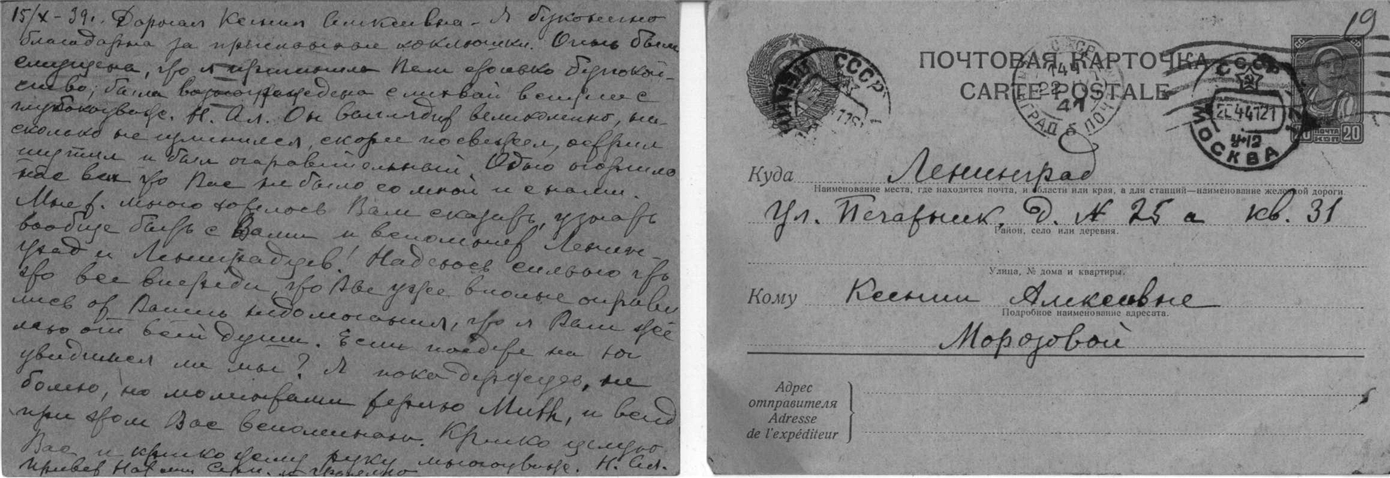 15/X - 39г. Дорогая Ксения Алексеевна - Я бесконечно
благодарна за присланные коклюшки. Очень была
смущена, что я причинила Вам столько беспокой-
ства, была вознаграждена встречей с
глубокоуваж. Н. Ал. Он выглядит великолепно, ни-
сколько не изменился, скорее посвежел, острил
шутил и был очарователь­ный. Одно огорчило
что Вас не было со мной и с нами.
много хотелось Вам сказать, узнать
вообще быть с Вами и вспомнить Ленин-
град и Ленинградцев! Надеюсь сильно что
это все впереди, что Вы уже вполне оправи
лись от Вашего недомогания, что я Вам же
лаю от всей души. Если поедете на юг
увидимся ли мы? Я пока держусь, не
болею, но молитвами терплю и всегд
при этом Вас вспоминаю. Крепко целую
Вас и крепко жму руку многоуваж. Н. Ал.
Привет
19
ПОЧТОВАЯ КАРТОЧКА
CARTE POSTALE
СССР
СССР
МОСКВА
ПОЧТА
20 КОП 20
Куда Ленинград
Наименование места, где находится почта, и области или края, а для станций—наименование железной дороги.
Ул. Печатник, д. № 25 а кв. 31
Район, село или деревня.
Улица, № дома и квартиры.
Кому Ксении Алексеевне
Подробное наименование адресата.
Морозовой
Адрес
отправителя
Adresse
de l'expéditeur